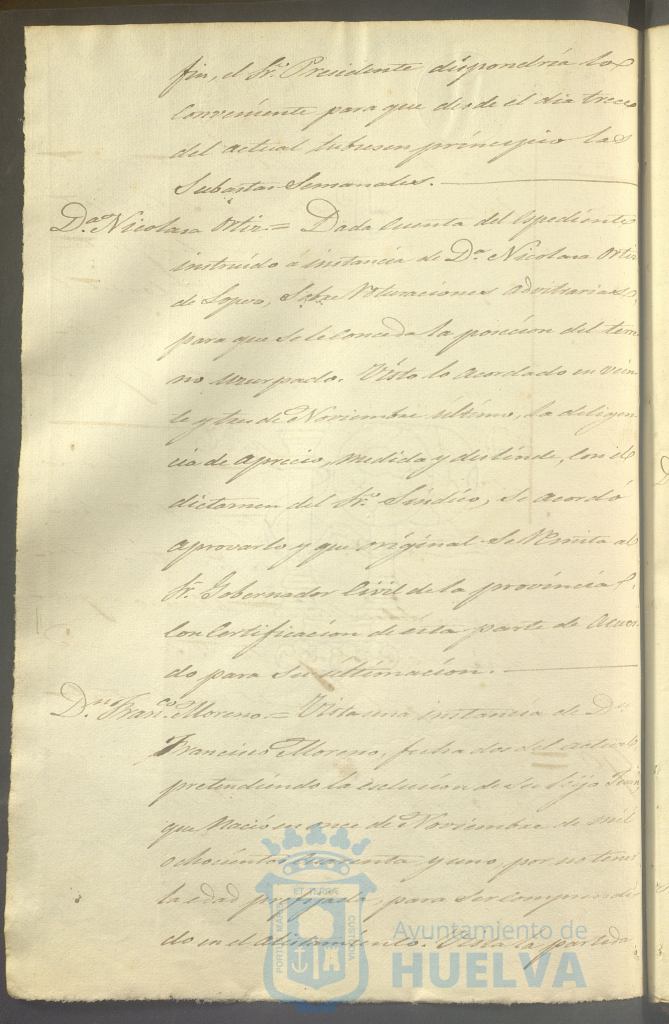 fin, el Sr. Presidente dispondría lo
conveniente para que desde el dia trece
del actual tubiesen principio las
Subastas Semanales.
Da. Nicolasa Ortiz.= Dada Cuenta del Espediente
instruido á instancia de Da. Nicolasa Ortiz
de Lopez, Sobre Roturaciones arbitrarias
para que se le conceda la posecion del terre
no usurpado. Visto lo acordado en vein
te y tres de Noviembre último, la diligen
cia de aprecio, medida y deslinde, con el
dictamen del Sr. Sindico, se acordó
aprovarlo y que original se remita al
Sr. Gobernador Civil de la provincia
con Certificacion de esta parte de Acuer
do para su ultimacion.
Dn. Franco. Moreno.= Vista una instancia de Dn.
Francisco Moreno, fecha dos del actual,
pretendiendo la esclusion de su hijo
que Nació en once de Noviembre de mil
ochocientos cuarenta y uno, por no tener
la edad prefijada, para ser comprendi
do en el Alistamiento. Vista la partida
PORTUS MARIS ET TERRÆ CUSTODIA
Ayuntamiento de
HUELVA